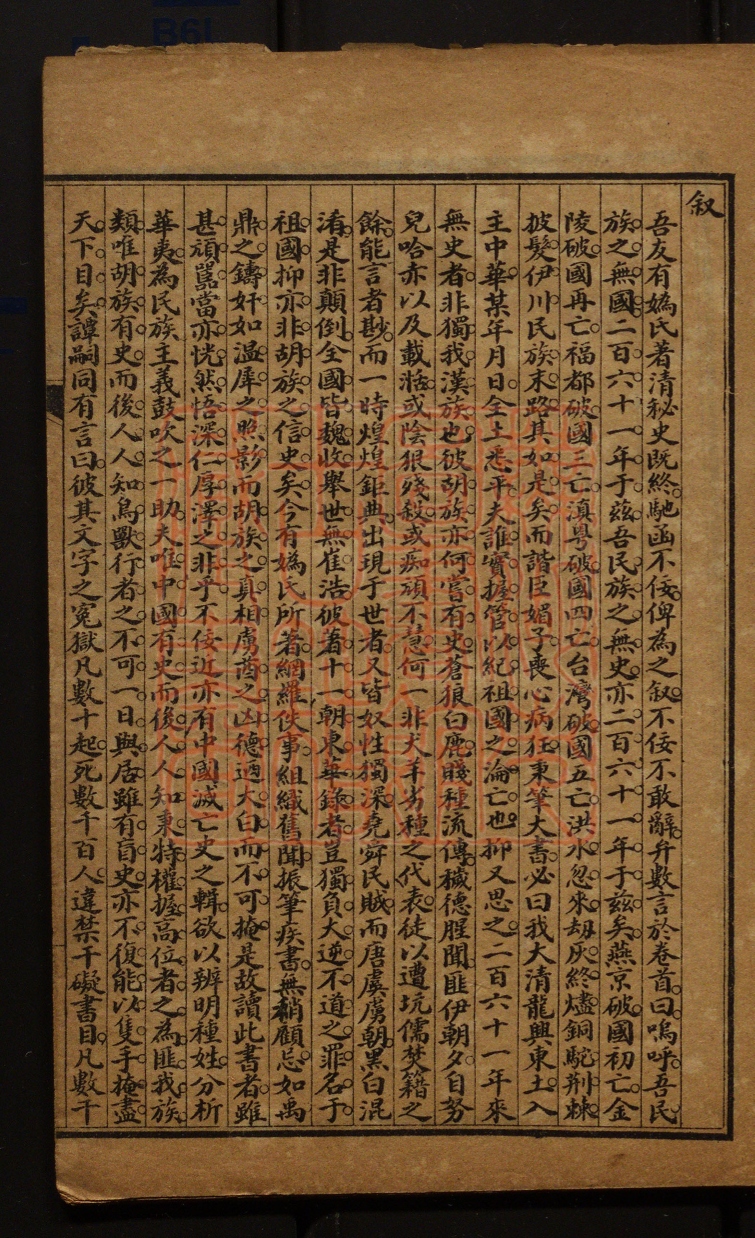 叙
吾友有媯氏著清秘史既終馳函不佞俾為之叙不佞不敢辭弁數言於卷首曰嗚呼吾民
族之無國二百六十一年于兹吾民族之無史亦二百六十一年于兹矣燕京破國初亡金
陵破國再亡福都破國三亡滇粤破國四亡台灣破國五亡洪水忽來劫灰終燼銅駝荆棘
披髮伊川民族末路其如是矣而諧臣媚子喪心病狂秉筆大書必曰我大清龍興東土入
主中華某年月日全土悉平夫誰實握管以紀祖國之淪亡也抑又思之二百六十一年來
無史者非獨我漢族也彼胡族亦何嘗有史蒼狼白鹿賤種流傳穢德腥聞匪伊朝夕自努
兒哈赤以及載湉或陰狠殘殺或痴頑不慧何一非犬羊劣種之代表徒以遭坑儒焚籍之
餘能言者尠而一時煌煌鉅典出現于世者又皆奴性獨深堯舜民賊而唐虞虜朝黑白混
淆是非顛倒全國皆魏收舉世無崔浩彼著十一朝東華錄者豈獨負大逆不道之罪名于
祖國抑亦非胡族之信史矣今有媯氏所著網羅佚事組織舊聞振筆疾書無稍顧忌如禹
鼎之鑄奸如温犀之照影而胡族之真相虜酋之凶德迺大白而不可掩是故讀此書者雖
甚頑嚚當亦恍然悟深仁厚澤之非乎不佞近亦有中國滅亡史之輯欲以辨明種姓分析
華夷為民族主義鼓吹之一助夫唯中國有史而後人人知秉特權握高位者之為匪我族
類唯胡族有史而後人人知鳥獸行者之不可一日與居雖有盲史亦不復能以隻手掩盡
天下目矣譚嗣同有言曰彼其文字之冤獄凡數十起死數千百人違禁干礙書目凡數千